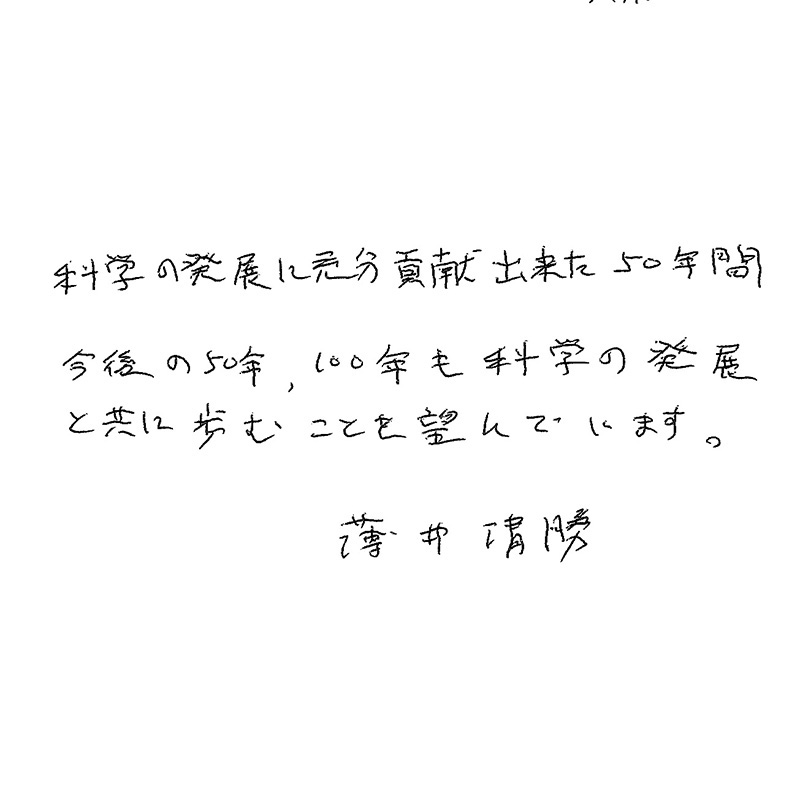 科学の発展に充分貢献出来た50年間
今後の50年,100年も科学の発展
と共に歩むことを望んでいます。
薄井 勝